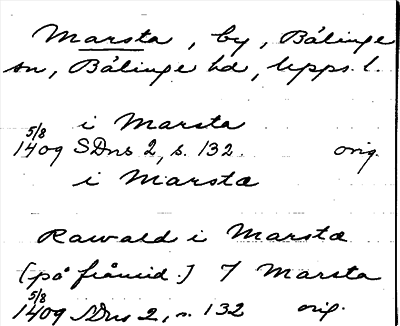 Marsta, by, Bälinge
sn, Bälinge hd, Upps. l.
i Marsta
5/8
1409 SDns 2, s. 132. orig.
i Marstæ
Rawald i Marstæ
(på frånsid.) 7 Marsta
5/8
1409 SDns 2, s. 132 orig.